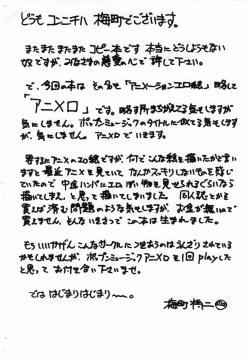 どうも コンニチハ 梅町でございます。
またまたまたまた コピー本です 本当に どうしようもない
奴ですが、みなさまの 心で 許して下さい。
で、今回の本は その名も「アニメーションエロ絵」略して
「アニメロ」 です。略す所まちがえてる気もしますが
気にしません。ポップンミュージックのタイトルに似てる気もします
が、気にしません。アニメロ でいきます。
要するにアニメのエロ絵ですが、何でこんな絵を描いたかと言い
ますと 最近アニメを見ていて なんかスッキリしないものを感じ
ていたので 中途ハンパにエロ い物を見せられるぐらいなら
描いてしまえ と思って描いてしまいました。同人誌とかを
買えば済む問題のような気もしますが お金が無いので
買えません。そんないきさつで この本は生まれました。
もういいかげん こんなサークルに つきあうのは うんざりされている
かもしれませんが、ポップンミュージックアニメロを1回playした
と思って お付き合い下さいませ。
では はじまりはじまり〜〜。